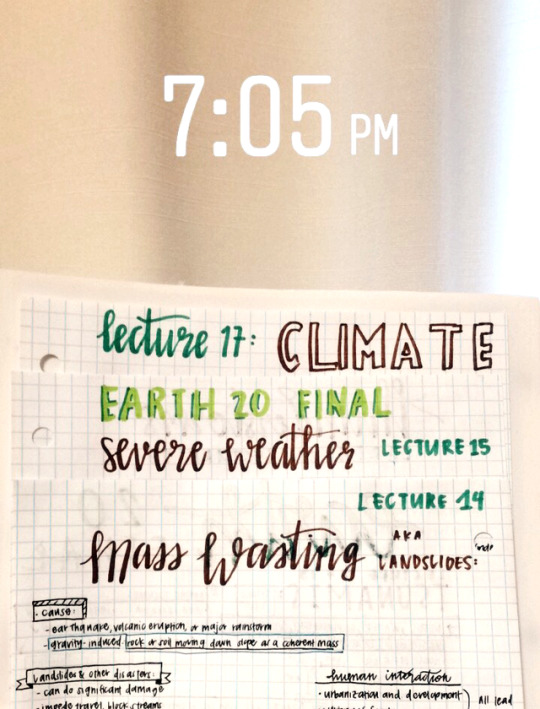 7:05 PM
lecture 17: CLIMATE
EARTH 20 FINAL
severe weather LECTURE 15
LECTURE 14
Mass Wasting AKA LANDSLIDES:
• cause:
- earthquake, volcanic eruption, or major rainstorm
- gravity-induced rock or soil moving down slope as a coherent mass
Landslides & other disasters:
- can do significant damage
- impede travel, block streams
human interaction
• urbanization and development
All lead